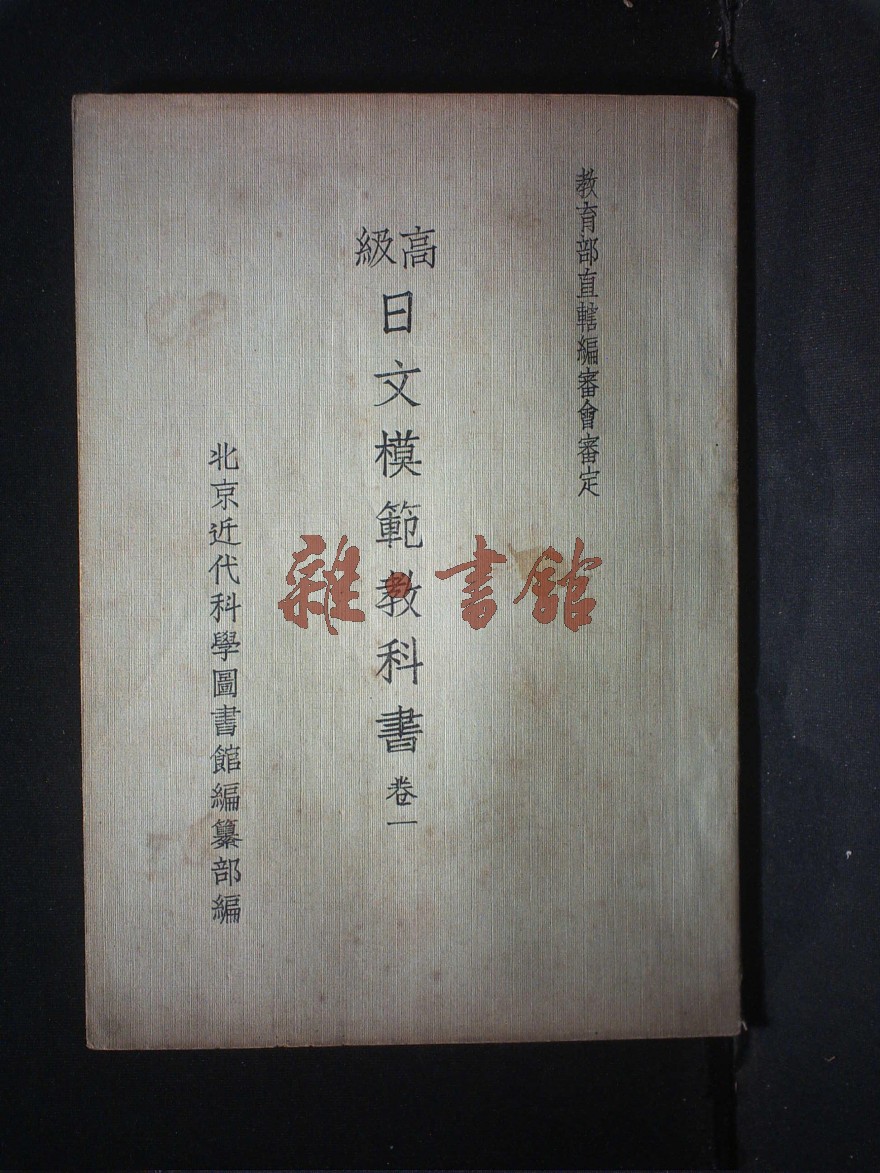 教育部直轄編審會審定
高級
日文模範教科書 卷一
北京近代科學圖書館編纂部編
雜書館